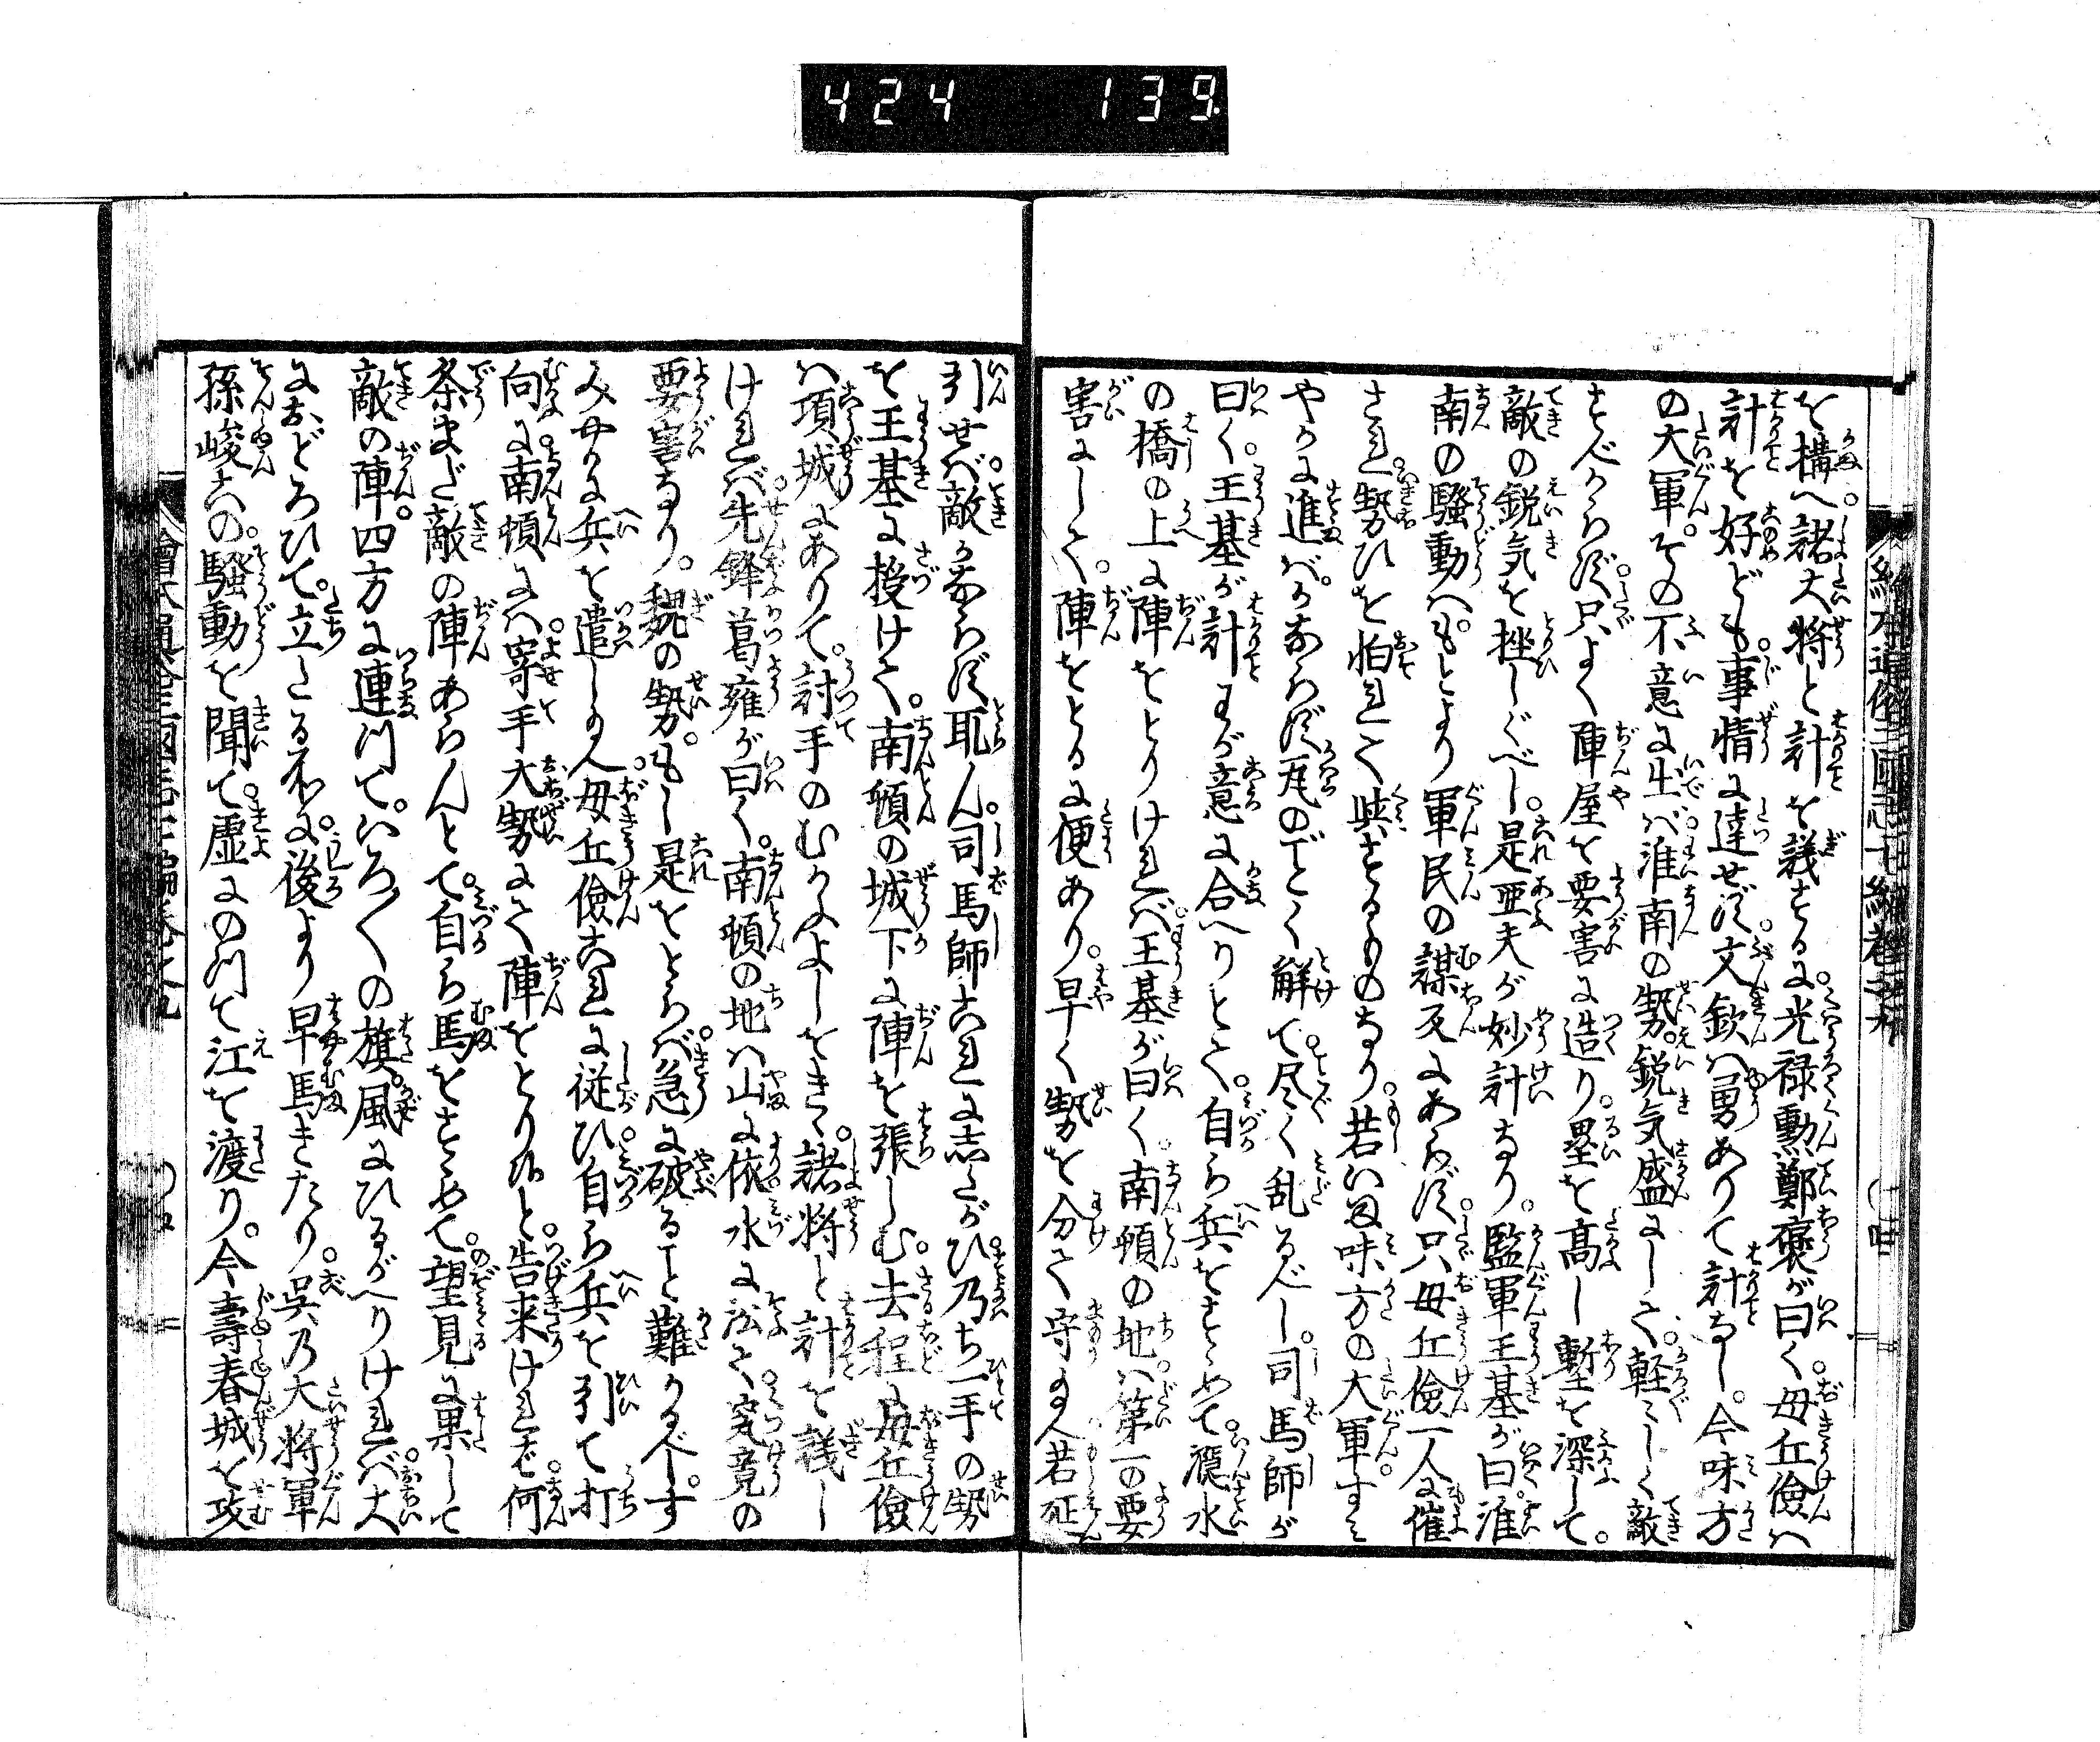 424 139
を構へ。諸大将と計を議するに。光禄勲鄭褒が曰く。毌丘儉ハ
計を好ども。事情に達せず。文欽ハ勇ありて計なし。今味方
の大軍。その不意に出バ。淮南の勢。鋭気盛にして。軽〻しく敵
すべからず。只よく陣屋を要害に造り。塁を高し塹を深して。
敵の鋭気を挫しぐべし。是亜夫が妙計なり。監軍王基が曰。淮
南の騒動ハ。もとより軍民の謀反にあらず。只毌丘儉一人に催
され。勢ひを怕れて與するものなり。若いま味方の大軍。すミ
やかに進バ。かならず瓦のごとく解て。尽く乱るべし。司馬師が
曰く。王基が計わが意に合へりとて。自ら兵をすゝめて。㶏水
の橋の上に陣をとりけれバ。王基が曰く。南頓の地ハ。第一の要
害にして。陣をとるに便あり。早く勢を分て守給へ。若延
引せバ。敵かならず取ん。司馬師これにしたがひ。乃ち一手の勢
を王基に授けて。南頓の城下に陣を張しむ。去程に毌丘儉
ハ項城にありて。討手のむかふよしをきゝ。諸将と計を議し
けれバ。先鋒葛雍が曰く。南頓の地ハ山に依。水に沿て。究竟の
要害なり。魏の勢。もし是をとらバ。急に破ること難かるべし。す
みやかに兵を遣し給へ。毌丘儉これに従ひ。自ら兵を引て打
向ふに。南頓にハ。寄手大勢にて陣をとり候と。告来けれど。何
条まだ敵の陣あらんとて。自ら馬をすゝめて。望見に果して
敵の陣。四方に連つて。いろ〱の旗。風にひるがへりけれバ。大
におどろひて。立たる所に。後より早馬きたり。呉乃大将軍
孫峻。この騒動を聞て。虚にのつて江を渡り。今壽春城を攻